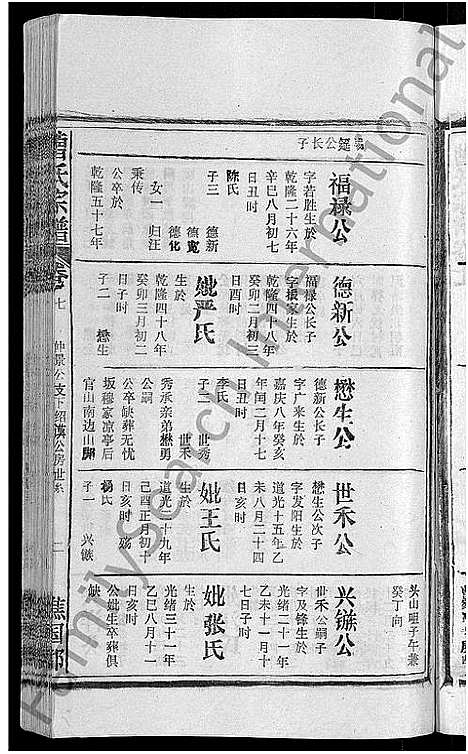 福禄公
字若胜生於
乾隆二十六年
辛巳八月初七
日丑时
陈氏
子三 德新
德宽
德化
女一 归汪
秉传
公卒於
乾隆五十七年
德新公
福禄公长子
字振家生於
乾隆四十八年
癸卯二月初三
日酉时
妣严氏
生於
乾隆四十八年
癸卯三月初二
日子时
子二 懋生
懋生公
德新公长子
字广来生於
嘉庆八年癸亥
年闰二月十七
日丑时
李氏
子二 世秀
世禾
秀承亲弟懋勇
公嗣
公卒缺葬无忧
坂穆家凉亭后
官山南边山脚
世禾公
懋生公次子
字发阳生於
道光十五年乙
未八月二十四
日亥时
妣王氏
生於
道光二十九年
己酉正月初十
日亥时 殇
杨氏
子一 兴镞
头山咀子午兼
癸丁向
兴镞公
世禾公嗣子
字及锋生於
光绪二十一年
乙未十一月十
七日子时
妣张氏
生於
光绪三十一年
乙巳八月十一
日亥时
公妣生卒葬俱
缺
曹氏宗谱
卷七
仲景公支下绍汉公房世系
谯国郡
FamilySearch International